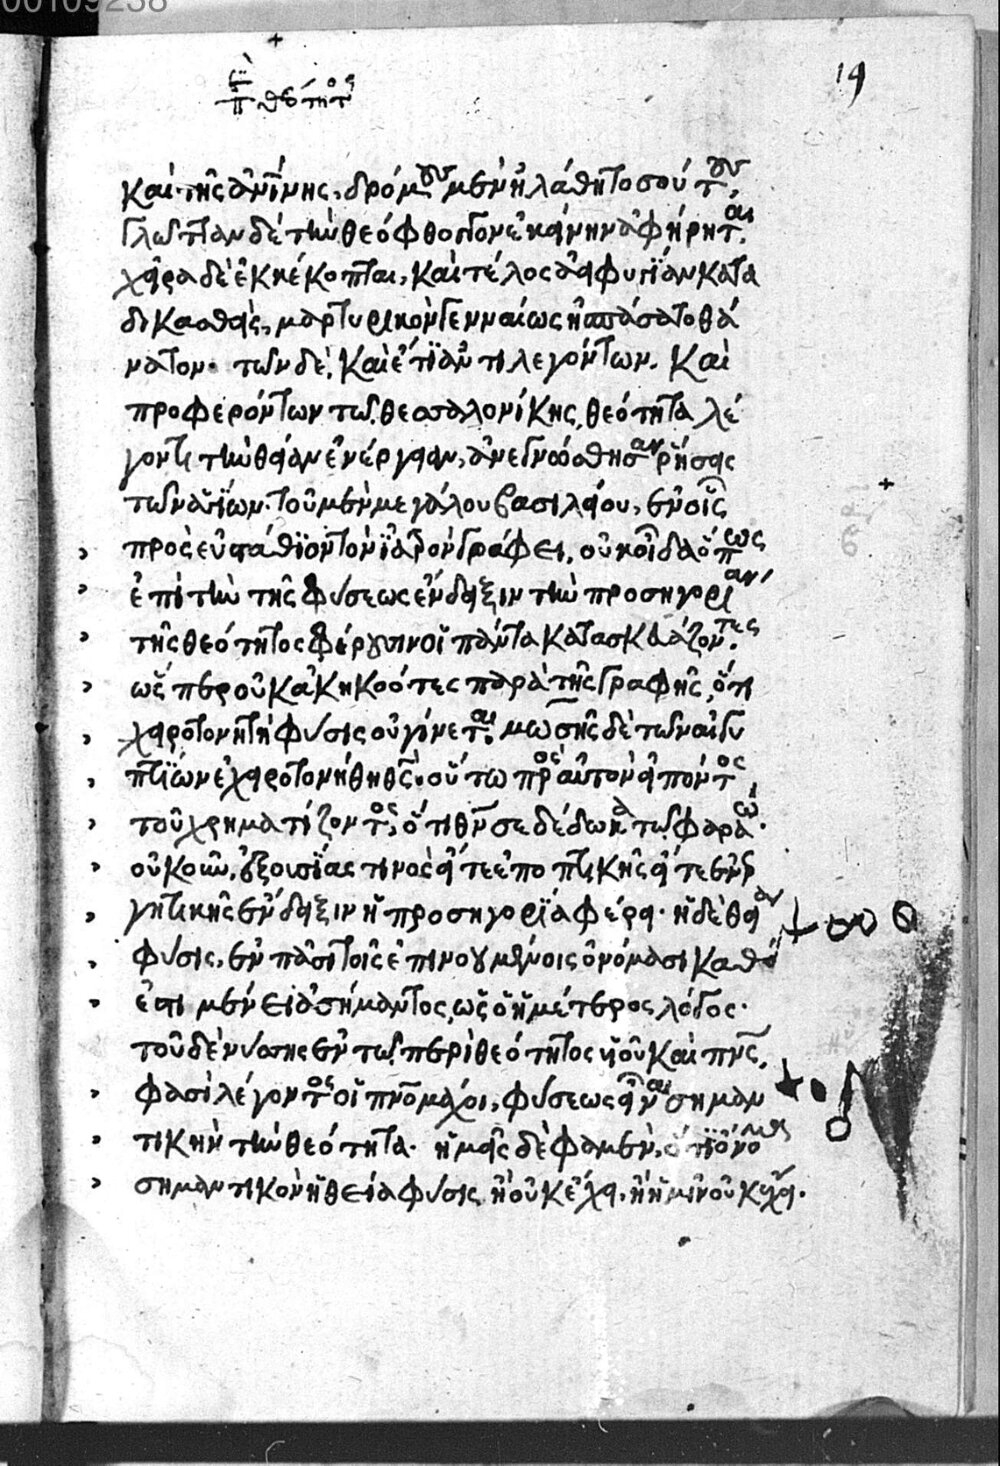 00109238
19
θεότητος
καὶ τῆς ἀντίνης, δρόμου μὲν ἠλάθη τοσούτου,
γλῶτταν δὲ τὴν θεόφθογγον ἐκείνην ἀφήρηται,
χεῖρα δὲ ἐκκέκοπται, καὶ τέλος ἀειφυγίαν κατα
δικασθεὶς, μαρτυρικὸν γενναίως ἠσπάσατο θά
νατον. τῶν δὲ, καὶ ἔτι ἀντιλεγόντων. καὶ
προφερόντων τῶ θεσσαλονίκης, θεότητα λέ
γοντι τὴν θείαν ἐνέργειαν, ἀνεγνώσθησαν ῥήσεις
τῶν ἁγίων. τοῦ μὲν μεγάλου βασιλείου, ἐν οἷς
πρὸς εὐστάθιον τὸν ἰατρὸν γράφει, οὐκ οἶδα ὅπως
ἐπὶ τὴν τῆς φύσεως ἔνδειξιν τὴν προσηγορίαν
τῆς θεότητος φέρουσιν οἱ πάντα κατασκευάζοντες
ὥσπερ οὐκ ἀκηκοότες παρὰ τῆς γραφῆς, ὅτι
χειροτονητὴ φύσις οὐ γίνεται. μωσῆς δὲ τῶν αἰγυ
πτίων ἐχειροτονήθη θεός. οὕτω πρὸς αὐτὸν εἰπόντος
τοῦ χρηματίζοντος, ὅτι θεόν σε δέδωκα τῶ φαραώ.
οὐκοῦν, ἐξουσίας τινὸς εἴτε ἐποπτικῆς εἴτε ἐνερ
γητικῆς ἔνδειξιν ἡ προσηγορία φέρει. ἡ δὲ θεία
φύσις, ἐν πᾶσι τοῖς ἐπινοουμένοις ὀνόμασι καθό
ἐστι μένει ἀσήμαντος, ὡς ὁ ἡμέτερος λόγος.
τοῦ δὲ νύσσης ἐν τῶ περὶ θεότητος υἱοῦ καὶ πνς.
φασὶ λέγοντος οἱ πνομάχοι, φύσεως εἶναι σημαν
τικὴν τὴν θεότητα. ἡμεῖς δὲ φαμὲν, ὅτι ὄνομα
σημαντικὸν ἡ θεία φύσις ἢ οὐκ ἔχει, ἢ ἡμῖν οὐκ ἔχει.